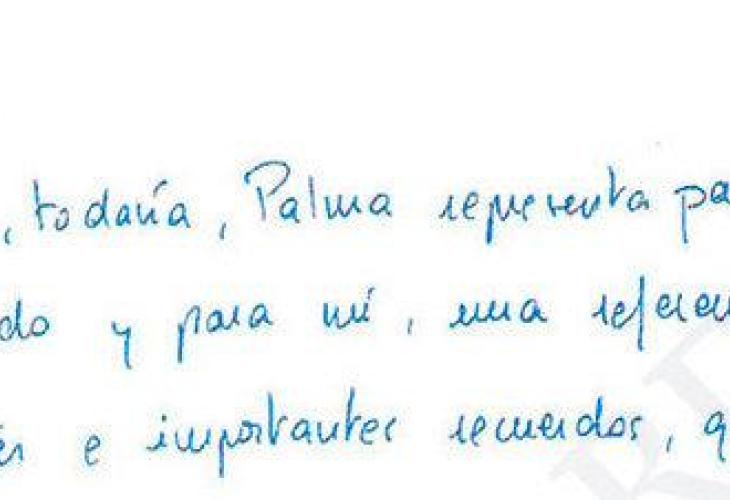 , todavía, Palma representa pa
do y para mí, una referen
er e importantes recuerdos, q